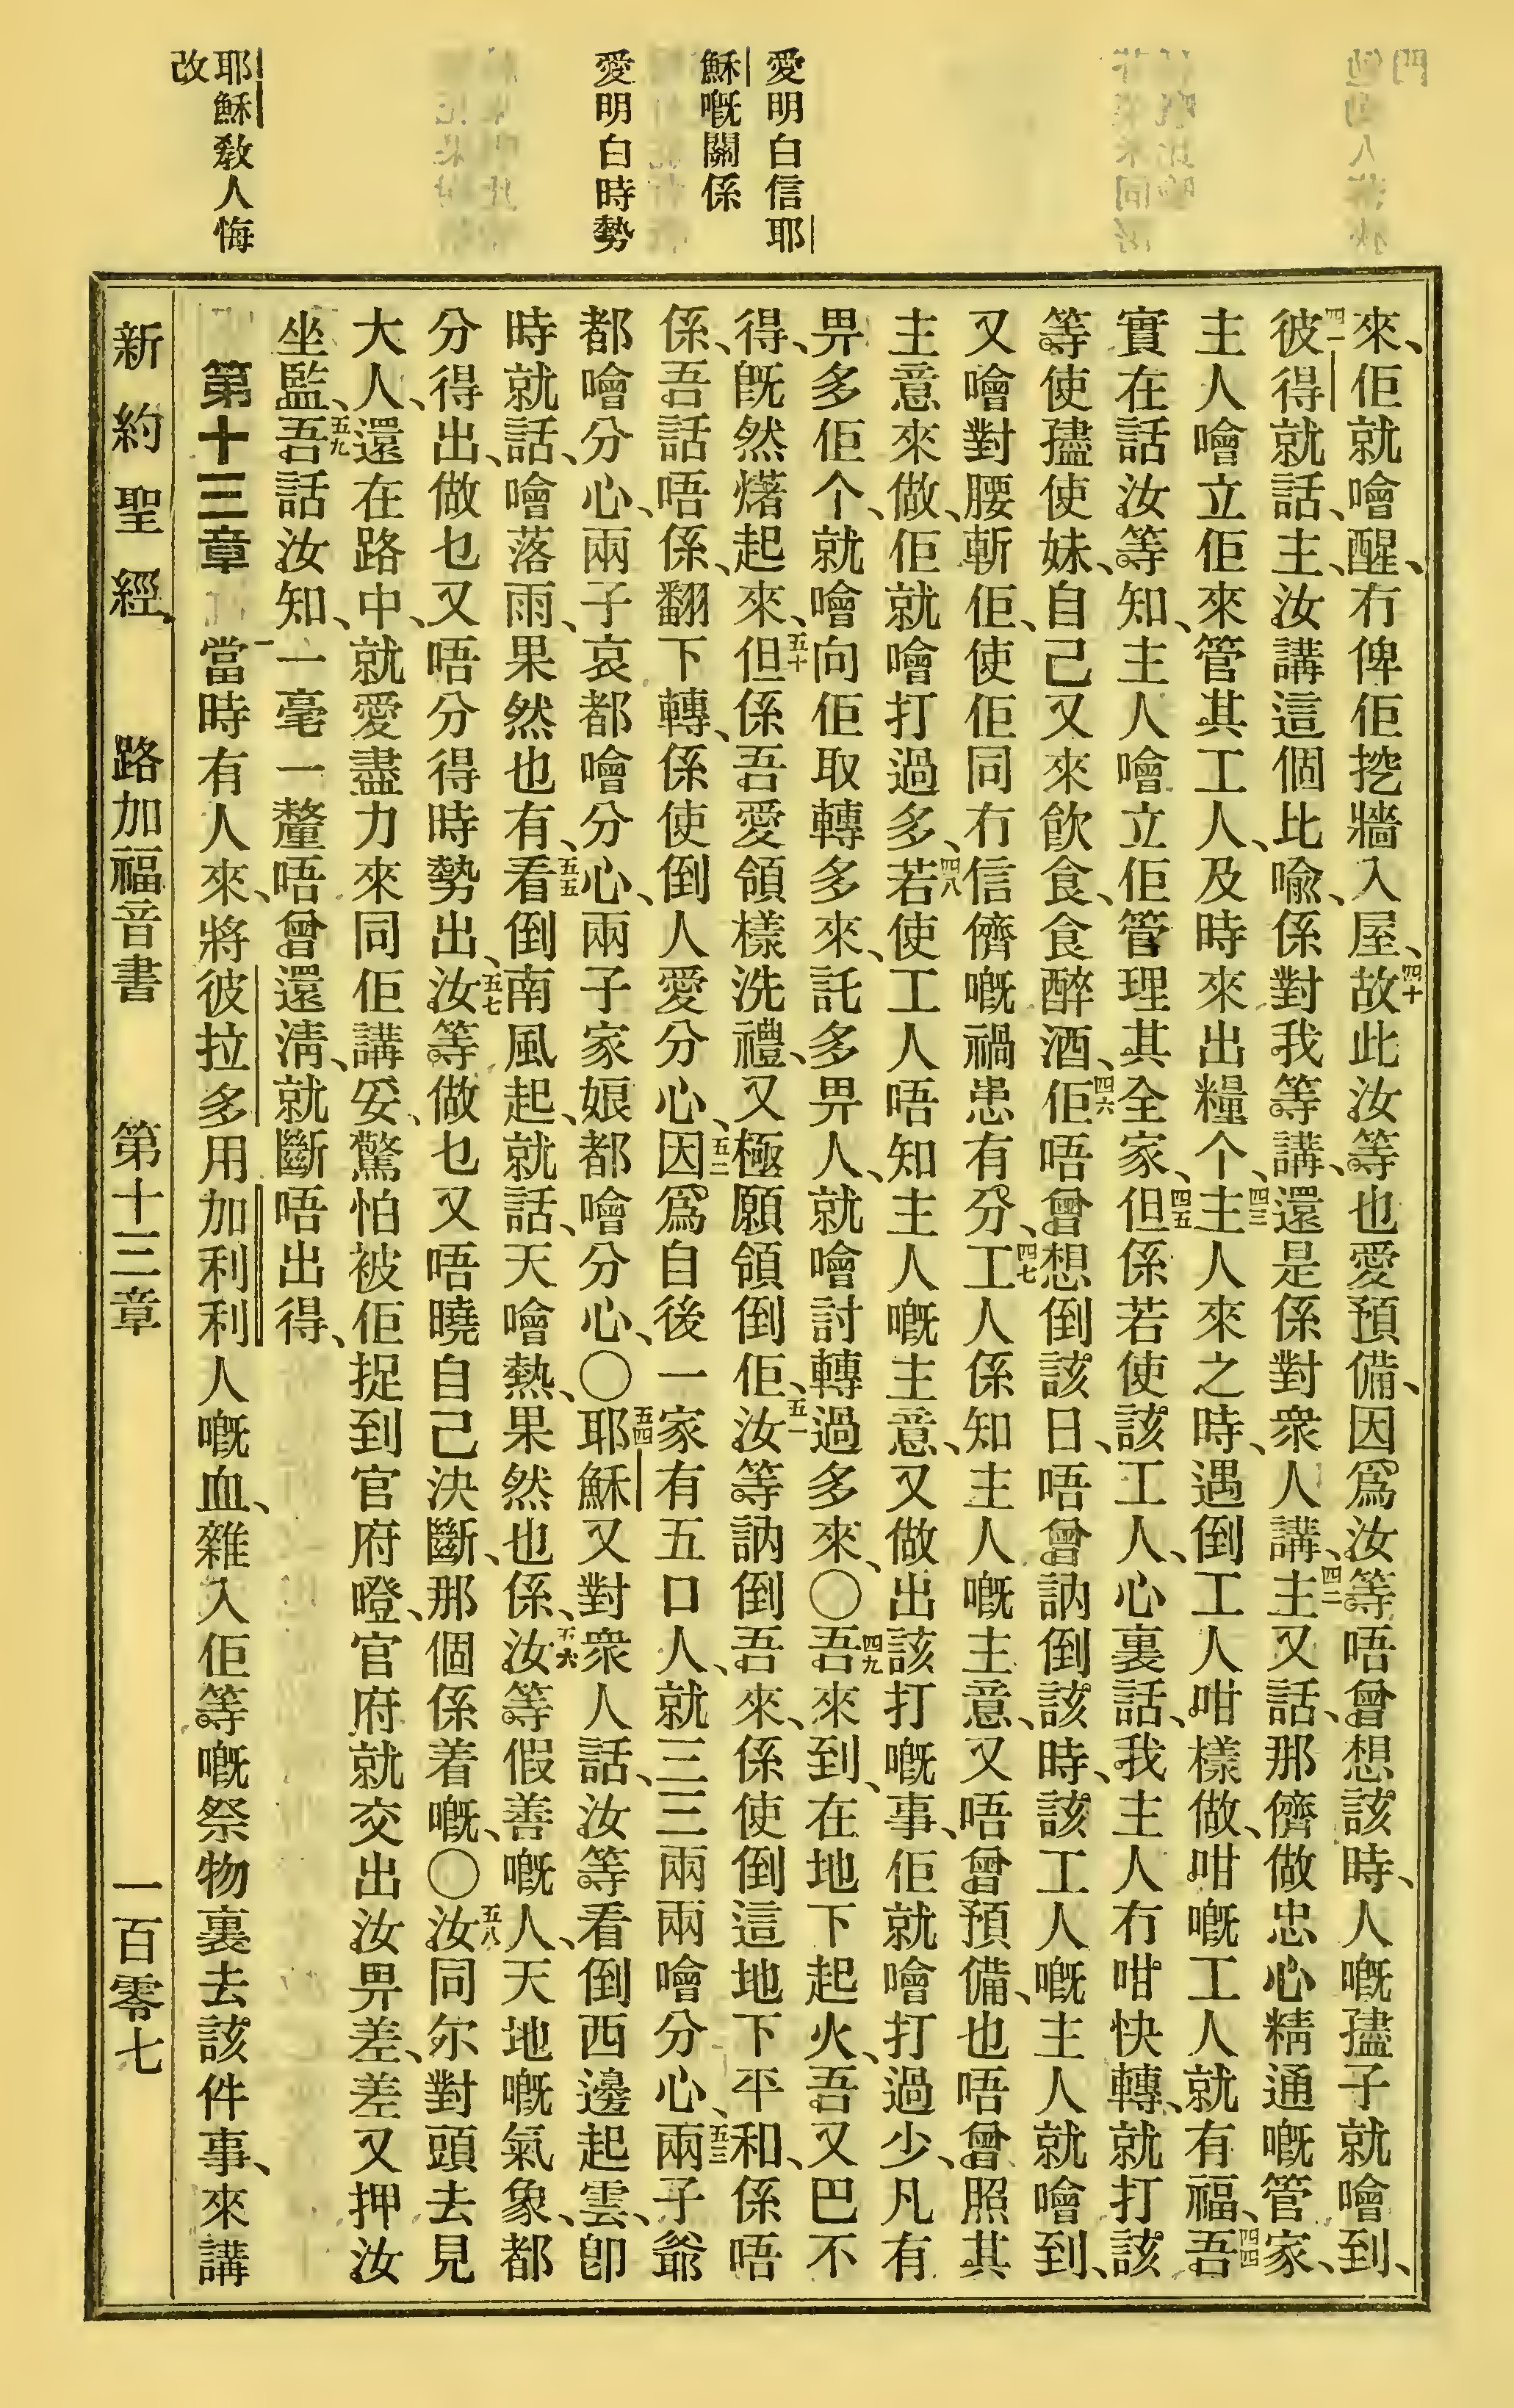 愛明白信耶
穌嘅關係
愛明白時勢
耶穌教人悔
改
來、佢就噲醒、冇俾佢挖牆入屋、四十故此汝等也愛預備、因爲汝等唔曾想該時、人嘅孻子就噲到、
四一彼得就話、主、汝講這個比喻、係對我等講、還是係對衆人講、四二主又話、那儕做忠心精通嘅管家、
主人噲立佢來管其工人、及時來出糧个、四三主人來之時、遇倒工人咁樣做、咁嘅工人就有福、四四吾
實在話汝等知、主人噲立佢管理其全家、四五但係若使該工人、心裏話、我主人冇咁快轉、就打該
等使孻使妹、自己又來飲食、食醉酒、四六佢唔曾想倒該日、唔曾訥倒該時、該工人嘅主人就噲到、
又噲對腰斬佢、使佢同冇信儕嘅禍患有分、四七工人係知主人嘅主意、又唔曾預備、也唔曾照其
主意來做、佢就噲打過多、四八若使工人唔知主人嘅主意、又做出該打嘅事、佢就噲打過少、凡有
畀多佢个、就噲向佢取轉多來、託多畀人、就噲討轉過多來、〇四九吾來到、在地下起火、吾又巴不
得、既然㷮起來、五十但係吾愛領樣洗禮、又極願領倒佢、五一汝等訥倒吾來、係使倒這地下平和、係唔
係、吾話唔係、翻下轉、係使倒人愛分心、五二因爲自後一家有五口人、就三三兩兩噲分心、五三兩子爺
都噲分心、兩子哀都噲分心、兩子家娘都噲分心、〇五四耶穌又對衆人話、汝等看倒西邊起雲、卽
時就話、噲落雨、果然也有、五五看倒南風起、就話、天噲熱、果然也係、五六汝等假善嘅人、天地嘅氣象、都
分得出、做乜又唔分得時勢出、五七汝等做乜又唔曉自己決斷、那個係着嘅、〇五八汝同尔對頭去見
大人、還在路中、就愛盡力來同佢講妥、驚怕被佢捉到官府噔、官府就交出汝畀差、差又押汝
坐監、五九吾話汝知、一毫一釐唔曾還淸、就斷唔出得、
第十三章　一當時有人來、將彼拉多用加利利人嘅血、雜入佢等嘅祭物裏去該件事、來講
新約聖經　路加福音書　第十三章　一百零七